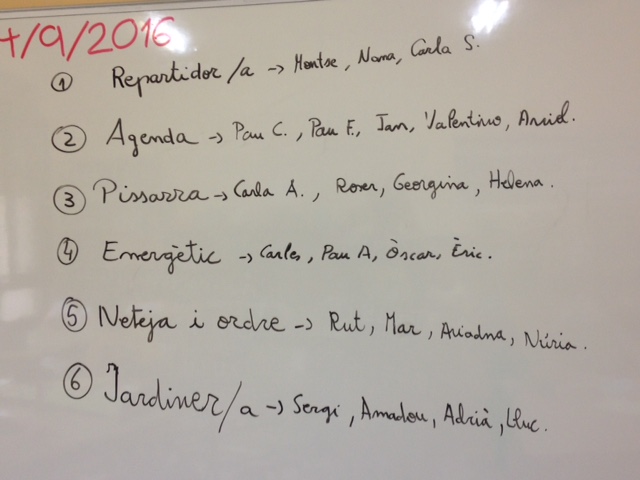 /9/2016
① Repartidor/a -> Montse, Nama, Carla S.
② Agenda -> Pau C., Pau F., Jan, Valentino, Aniol.
③ Pissarra -> Carla A., Roser, Georgina, Helena.
④ Emergètic -> Carles, Pau A, Òscar, Èric.
⑤ Neteja i ordre -> Rut, Mar, Ariadna, Núria.
⑥ Jardiner/a -> Sergi, Amadou, Adrià, Lluc.